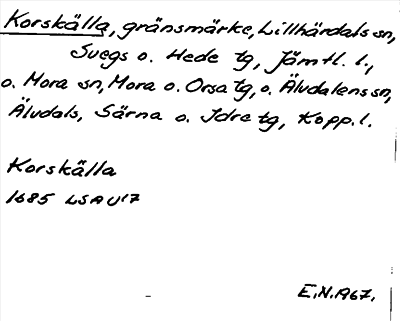 Korskälla, gränsmärke, Lillhärdals sn,
Svegs o. Hede tg, Jämtl. l.,
o. Mora sn, Mora o. Orsa tg, o. Älvdalens sn,
Älvdals, Särna o. Idre tg, Kopp. l.
Korskälla
1685 LSA U17
E.N. 1967.